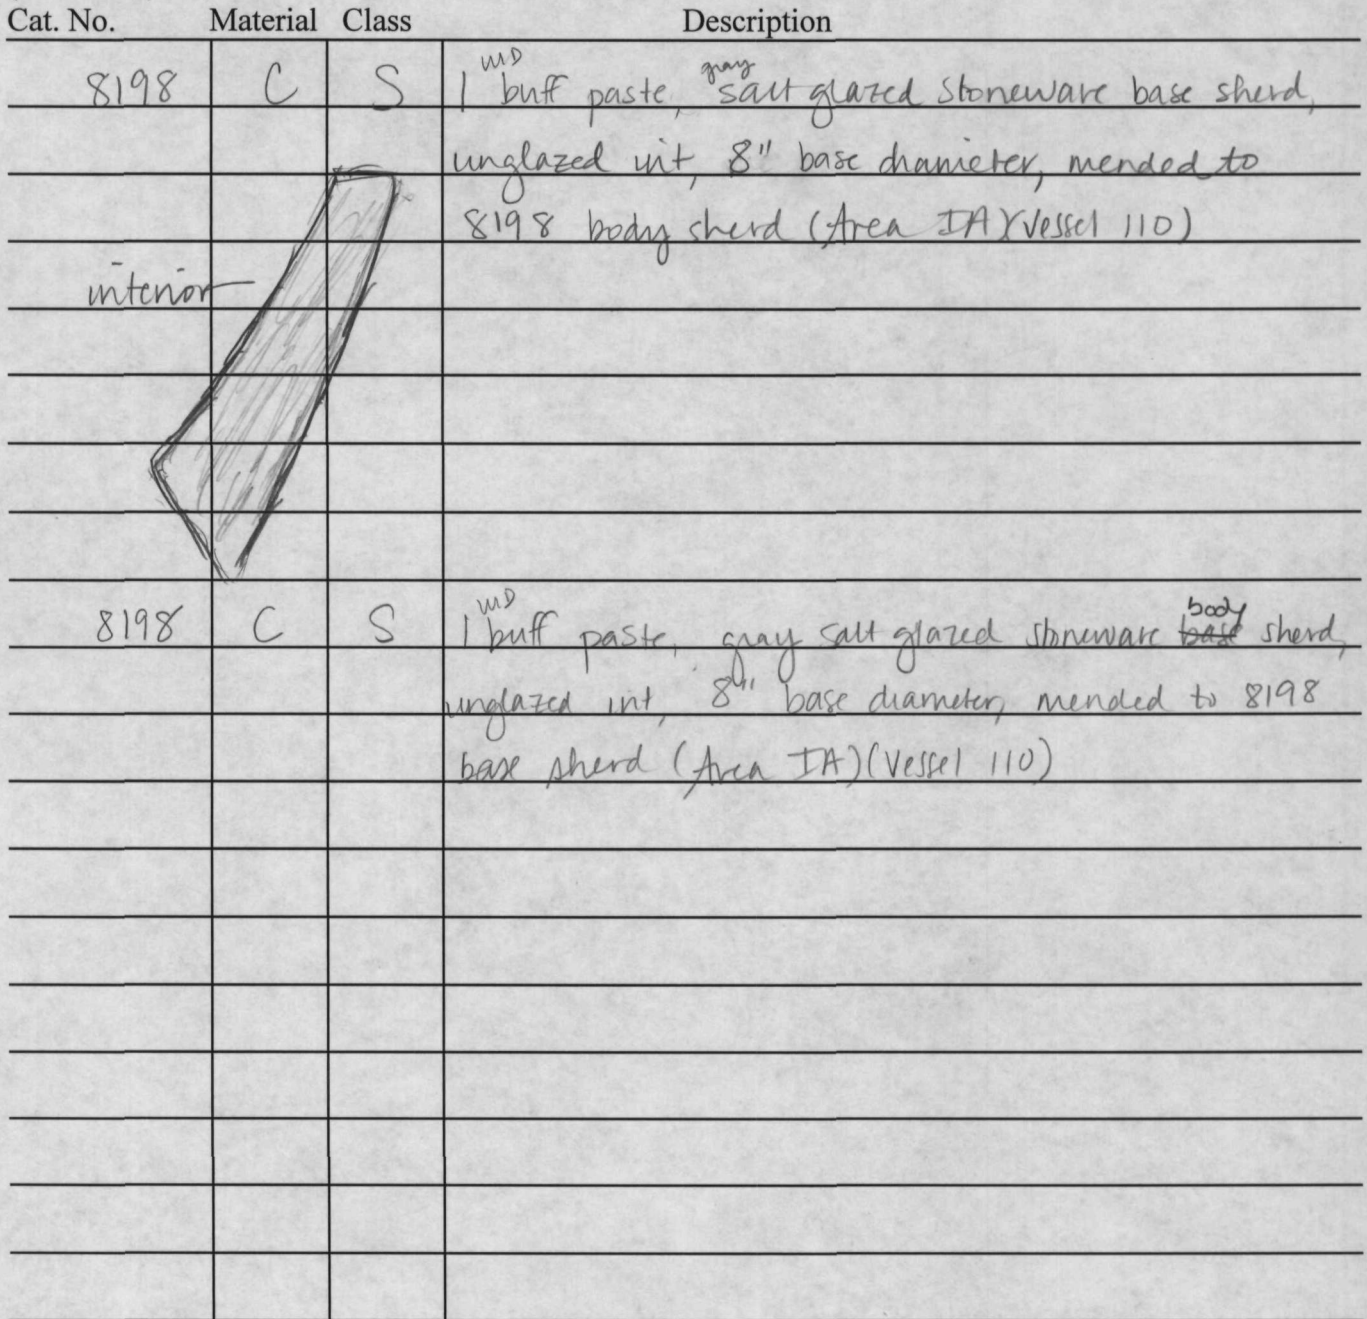 Cat. No. Material Class Description
8198 C S 1 buff paste, gray salt glazed stoneware base sherd,
unglazed int, 8" base diameter, mended to
8198 body sherd (Area IA)(Vessel 110)
interior
8198 C S 1 buff paste, gray salt glazed stoneware base body sherd,
unglazed int, 8" base diameter, mended to 8198
base sherd (Area IA)(Vessel 110)